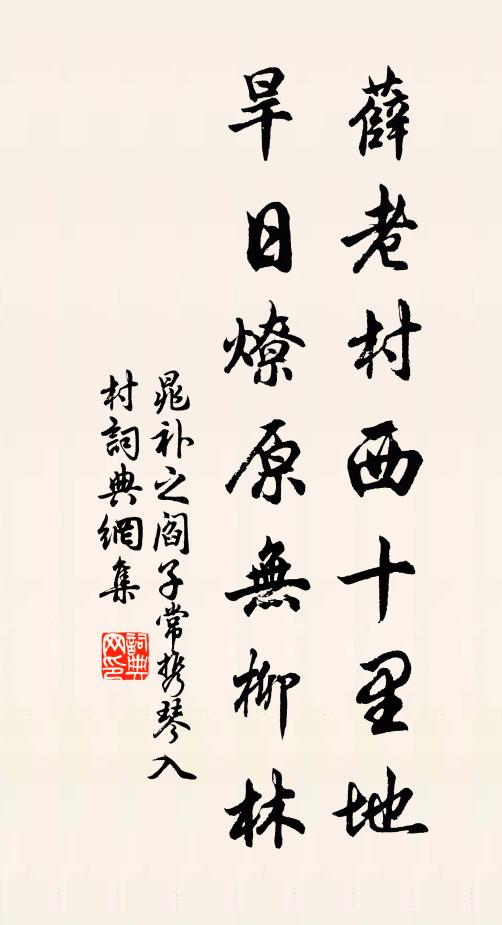 薛老村西十里地
旱日燎原無柳林
晁补之閻子常携琴入
村詞典網集
詞典
网印